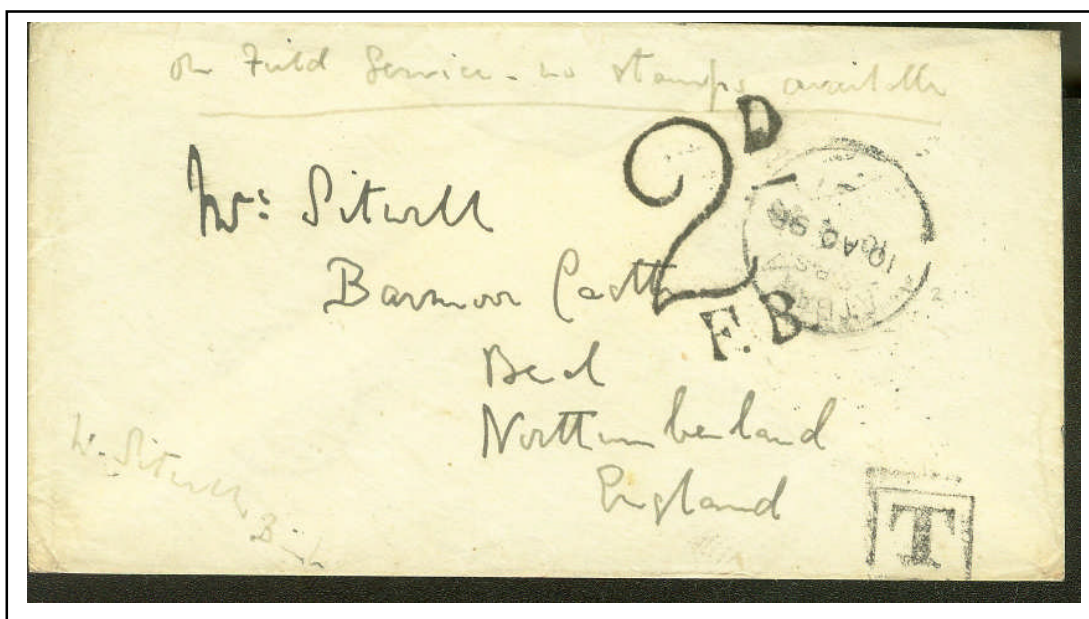 On Field Service - no stamps available
2D
F.B.
Mrs: Sitwell
Barmoor Castle
Beal
Northumberland
England
W. Sitwell
T